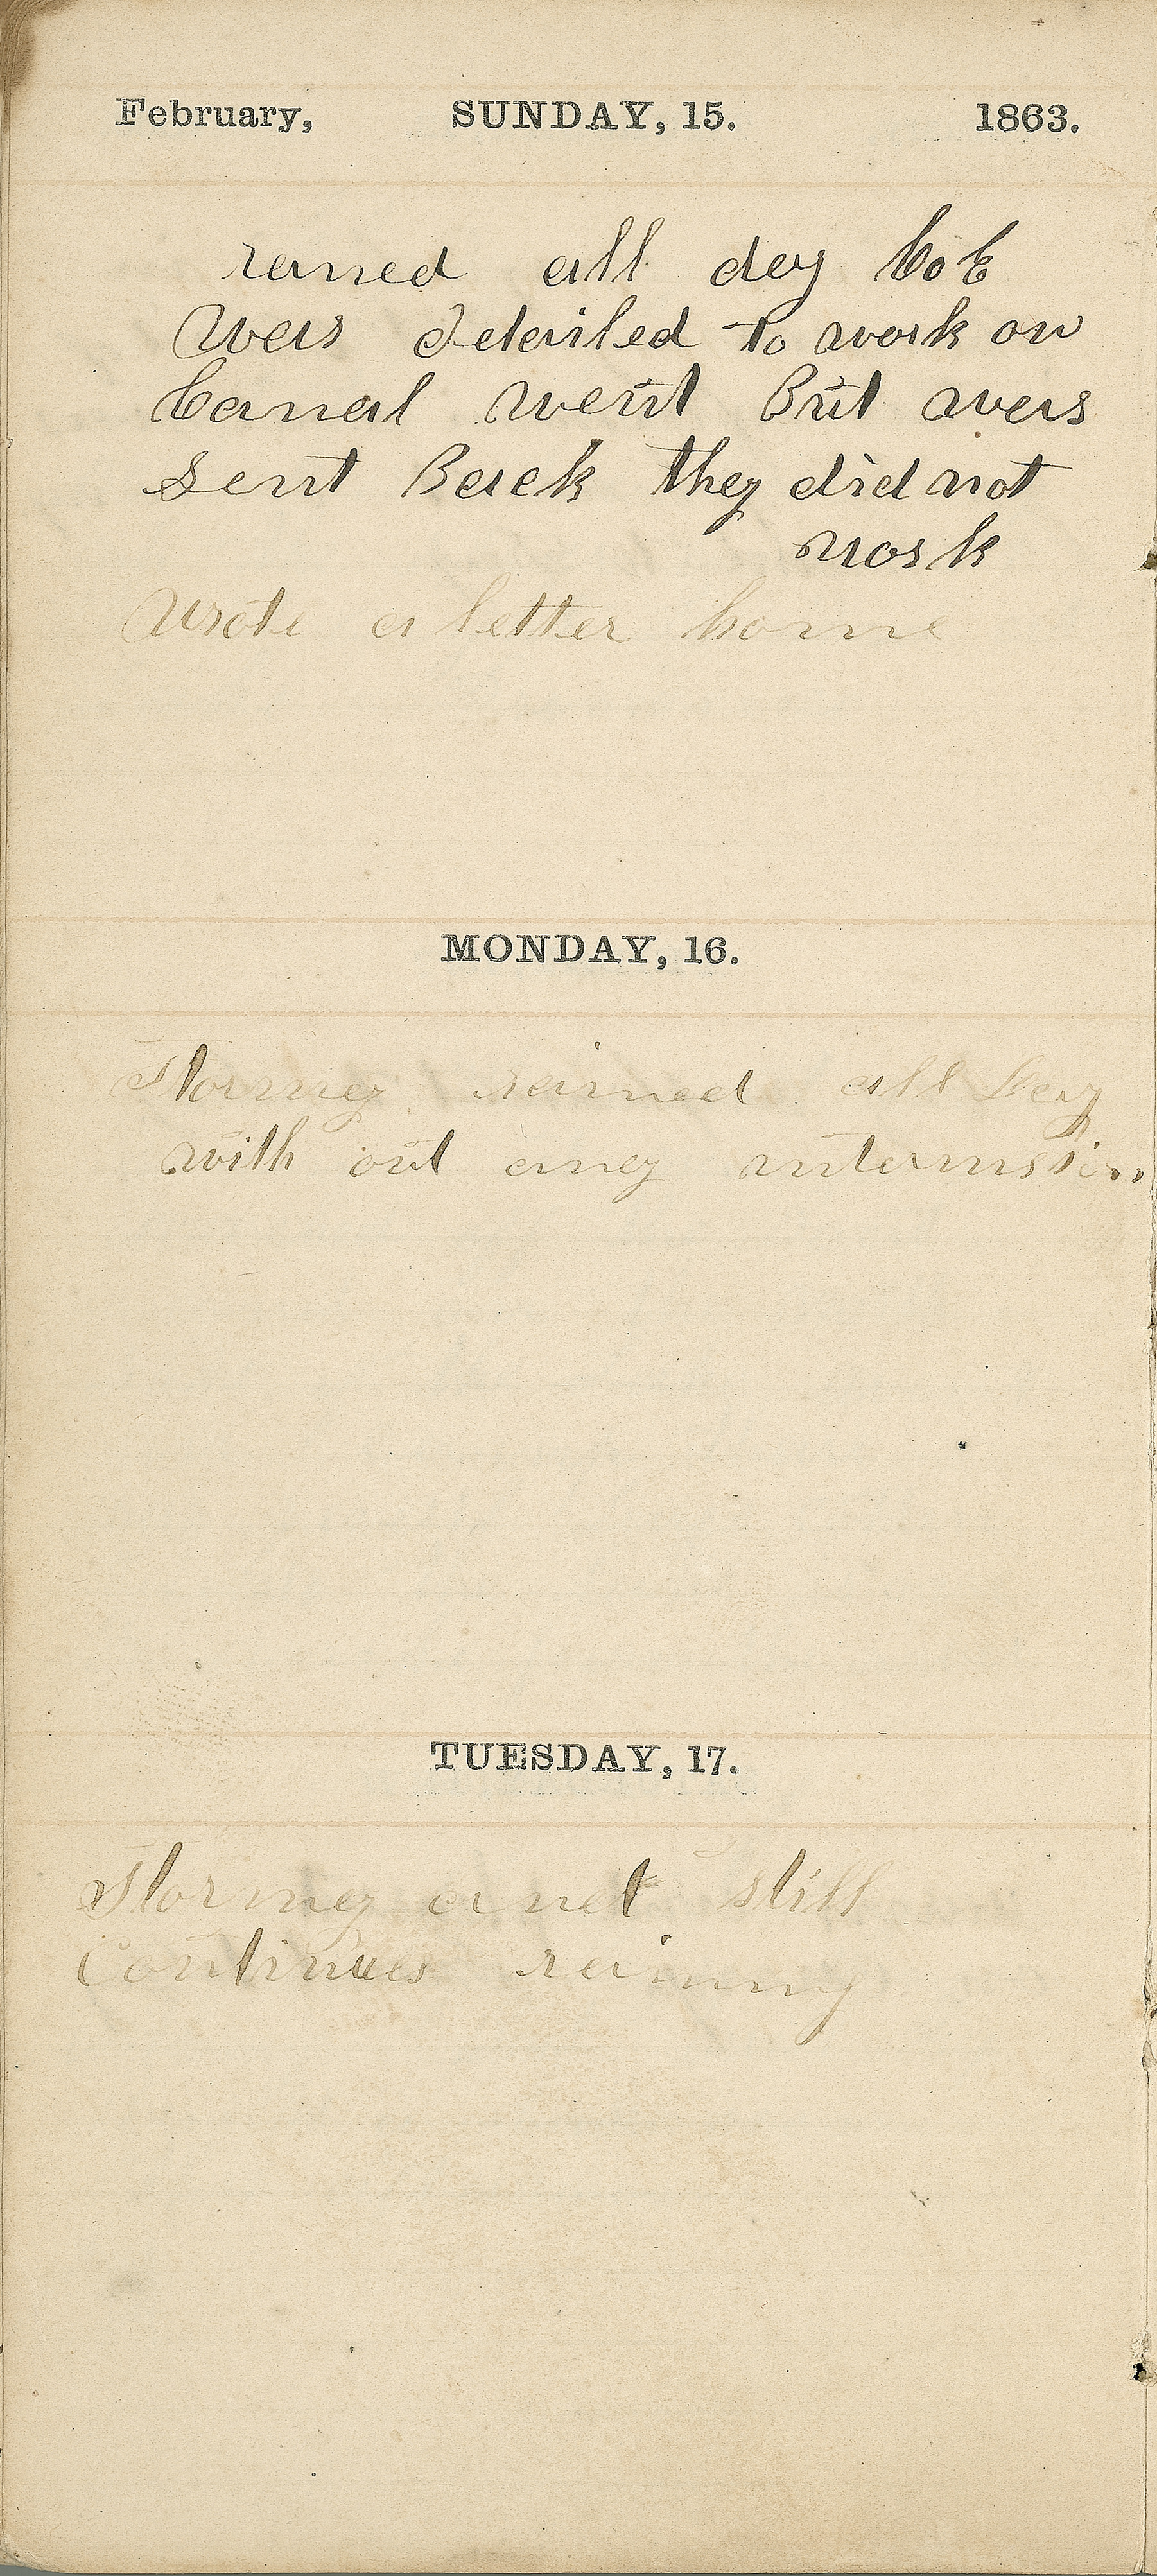 February, SUNDAY, 15. 1863.
rained all day Co E
was detailed to work on
Canal went But was
sent Back they did not
work
wrote a letter home
MONDAY, 16.
Stormey rained all Day
with out aney intermssion
TUESDAY, 17.
Stormey and still
Continues raining